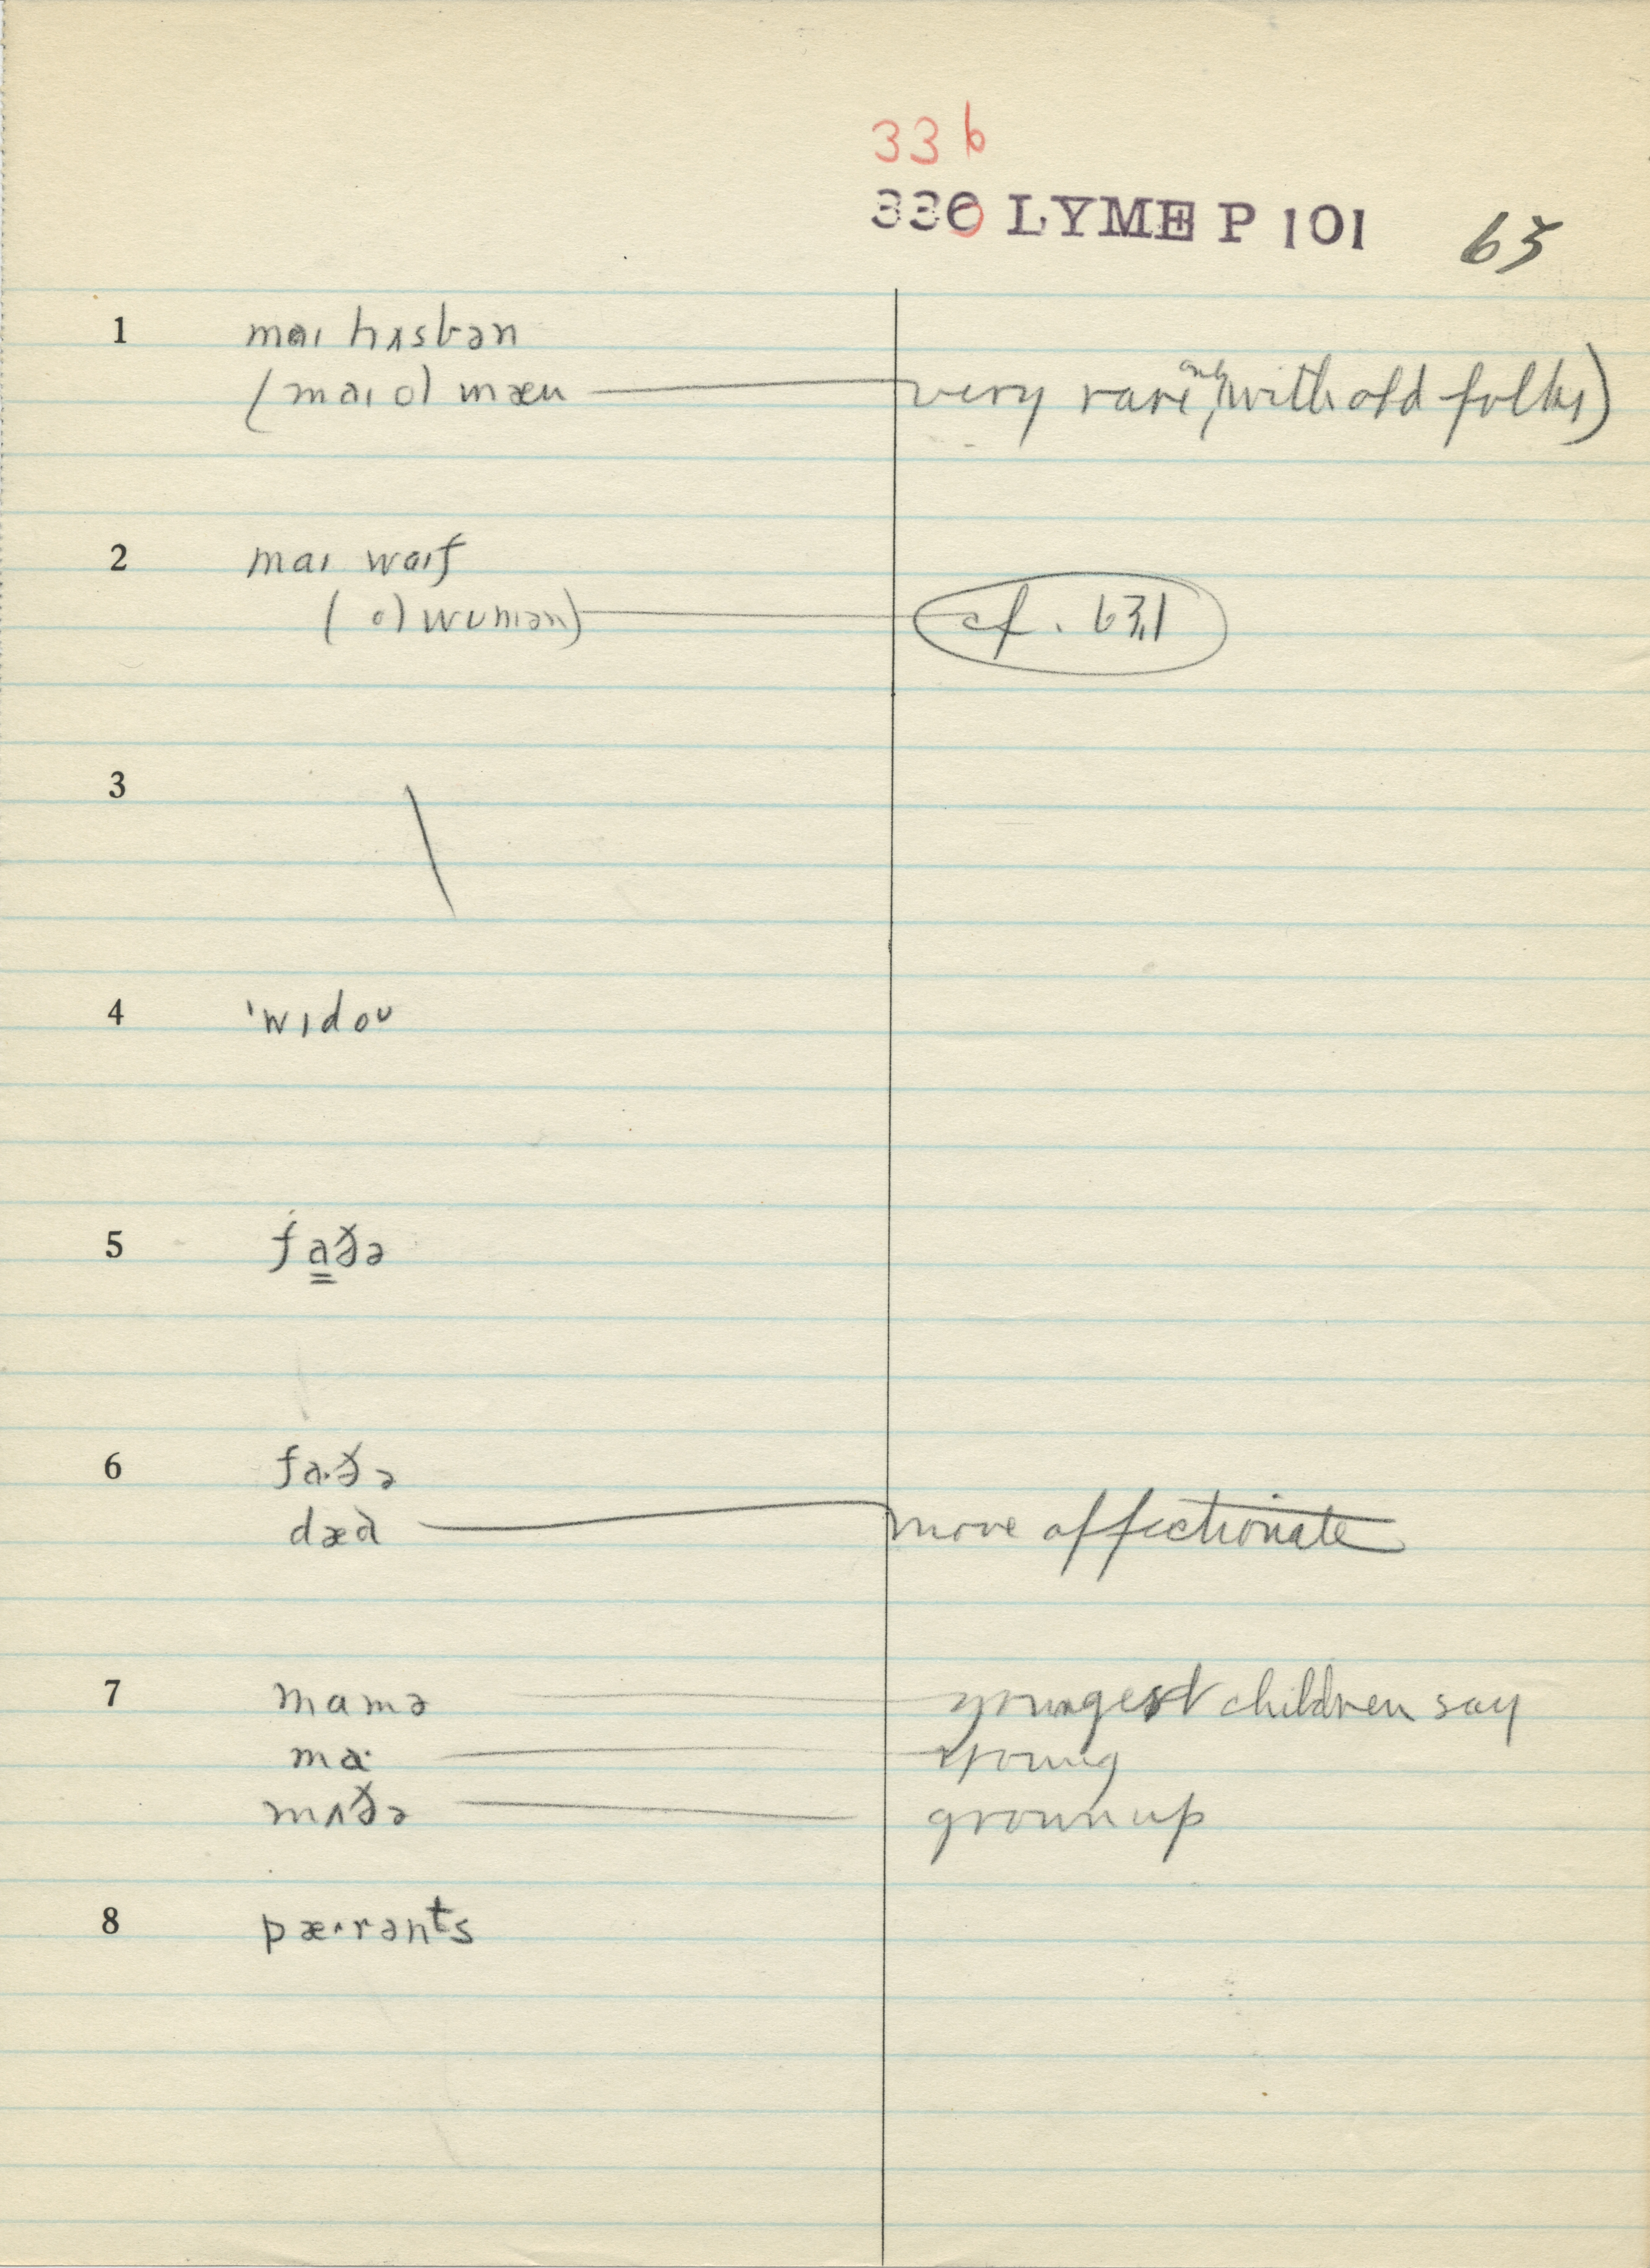 33b
336 LYME P 101 63
1 maɪ hʌsbən
(maɪ ol mæn very rare, only with old folks)
2 maɪ waɪf
(ol wumən) cf. 63,1
3 \
4 'wɪdoᴜ
5 fa̳ðə
6 fa·ðə
dæd more affectionate
7 mamə youngest children say
ma· young
mʌðə grown up
8 pæ·rənts